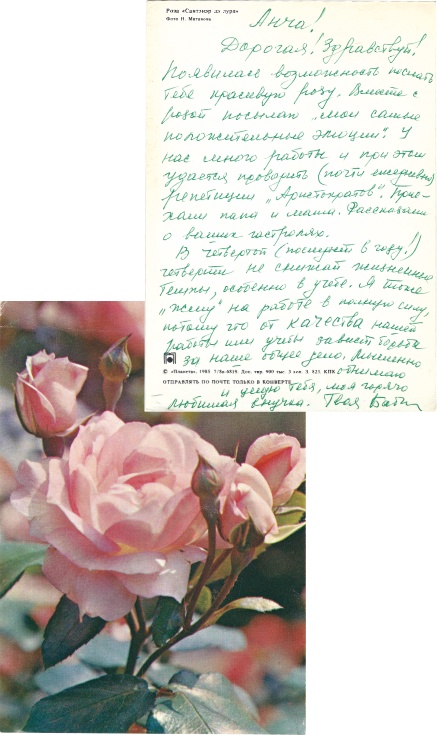 Роза «Сантэнэр дэ лурд»
Фото Н. Матанова
Анча!
Дорогая! Здравствуй!
Появилась возможность послать
тебе красивую розу. Вместе с
розой посылаю „мои самые
положительные эмоции“. У
нас много работы и при этом
удается проводить (почти ежедневно)
репетиции „Аристократов“. Прие-
хали папа и мама. Рассказали
о ваших гастролях.
В четвертой (последней в году!)
четверти не снижай жизненные
темпы, особенно в учебе. Я тоже
„жму“ на работе в полную силу,
потому что от качества нашей
работы или учебы зависит борьба
за наше общее дело. Мысленно
© «Планета», 1985 7/За-6839. Доп. тир. 900 тыс. 5 коп. З. 825. КПК
обнимаю
ОТПРАВЛЯТЬ ПО ПОЧТЕ ТОЛЬКО В КОНВЕРТЕ
и целую тебя, моя горячо
любимая внучка. Твоя